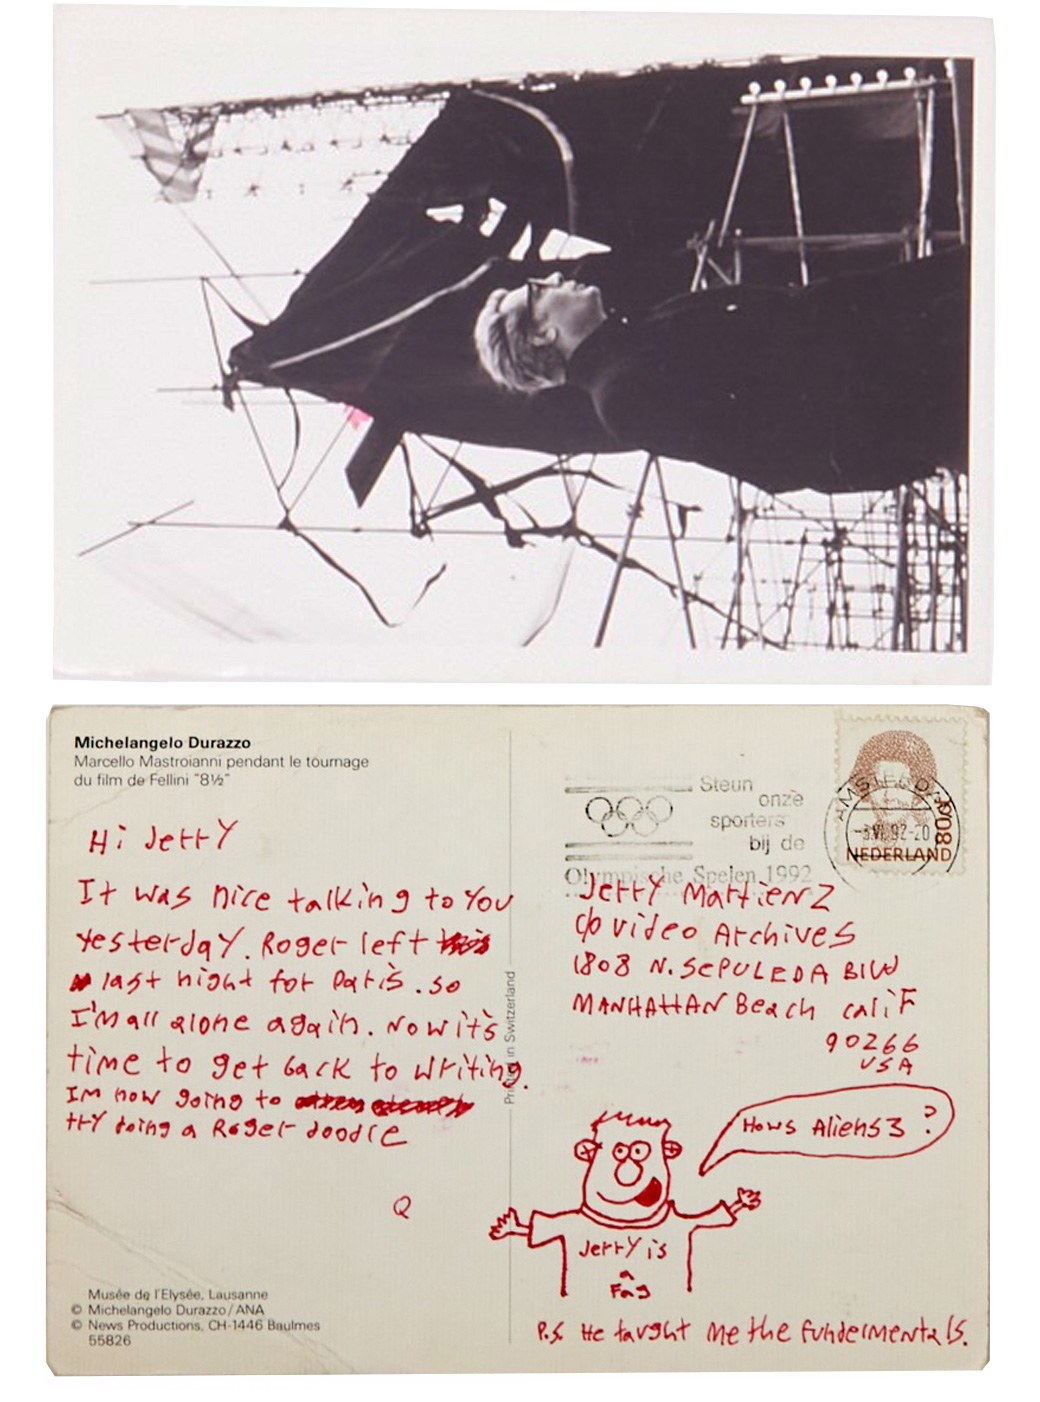 Michelangelo Durazzo
Marcello Mastroianni pendant le tournage
du film de Fellini "8½"
Hi Jerry
It was nice talking to You
Yesterday. Roger left
last night for Paris. so
I'm all alone again. Now it's
time to get back to writing.
Im now going to
try doing a Roger doodle
Q
Musée de l'Elysée, Lausanne
© Michelangelo Durazzo/ANA
© News Productions, CH-1446 Baulmes
55826
Printed in Switzerland
Steun
onze
sporters
bij de
Olympische Spelen 1992
AMSTERDAM
-3.VI.92-20
80c
NEDERLAND
Jerry Martienz
c/o video Archives
1808 N. SEPULEDA Blvd
MANHATTAN Beach caliF
90266
USA
Hows Aliens 3 ?
Jerry is
a
Fag
P.S. He taught me the fundermentals.